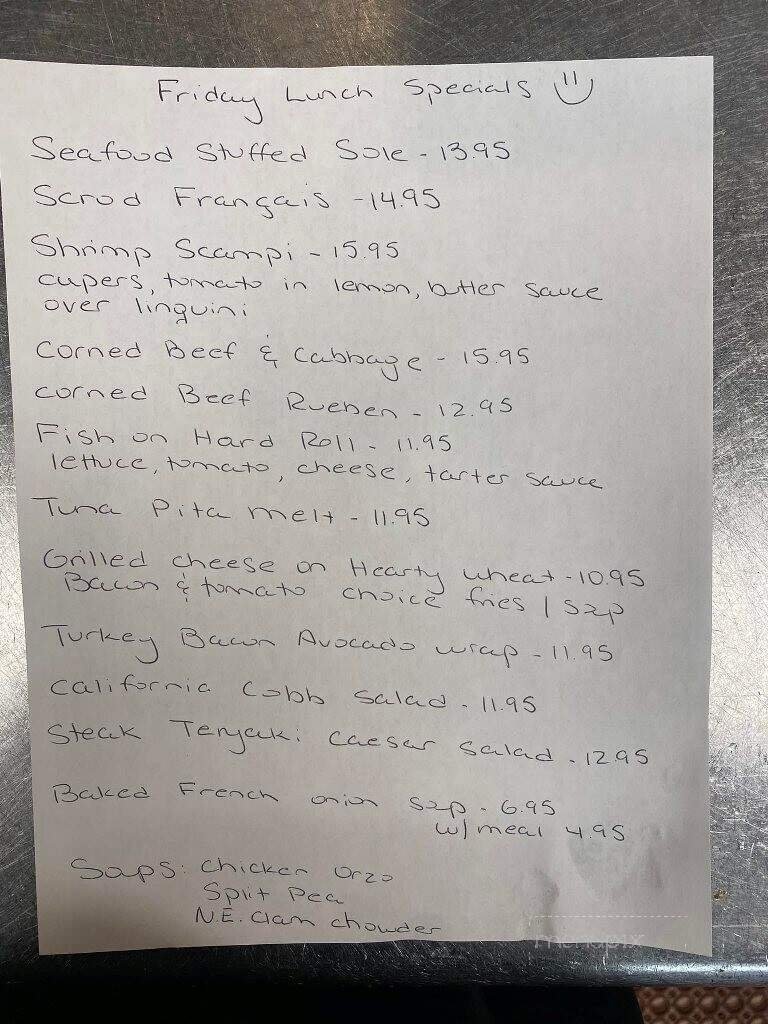 Friday Lunch Specials
Seafood Stuffed Sole - 13.95
Scrod Français - 14.95
Shrimp Scampi - 15.95
cupers, tomato in lemon, butter sauce
over linguini
Corned Beef & Cabbage - 15.95
corned Beef Rueben - 12.95
Fish on Hard Roll - 11.95
lettuce, tomato, cheese, tarter sauce
Tuna Pita melt - 11.95
Grilled cheese on Hearty wheat - 10.95
Bacon & tomato choice fries / Soup
Turkey Bacon Avocado wrap - 11.95
California Cobb Salad - 11.95
Steak Teryaki Caesar Salad - 12.95
Baked French onion Soup - 6.95
w/ meal 4.95
Soups: Chicken Orzo
Split Pea
N.E. Clam Chowder
menupix